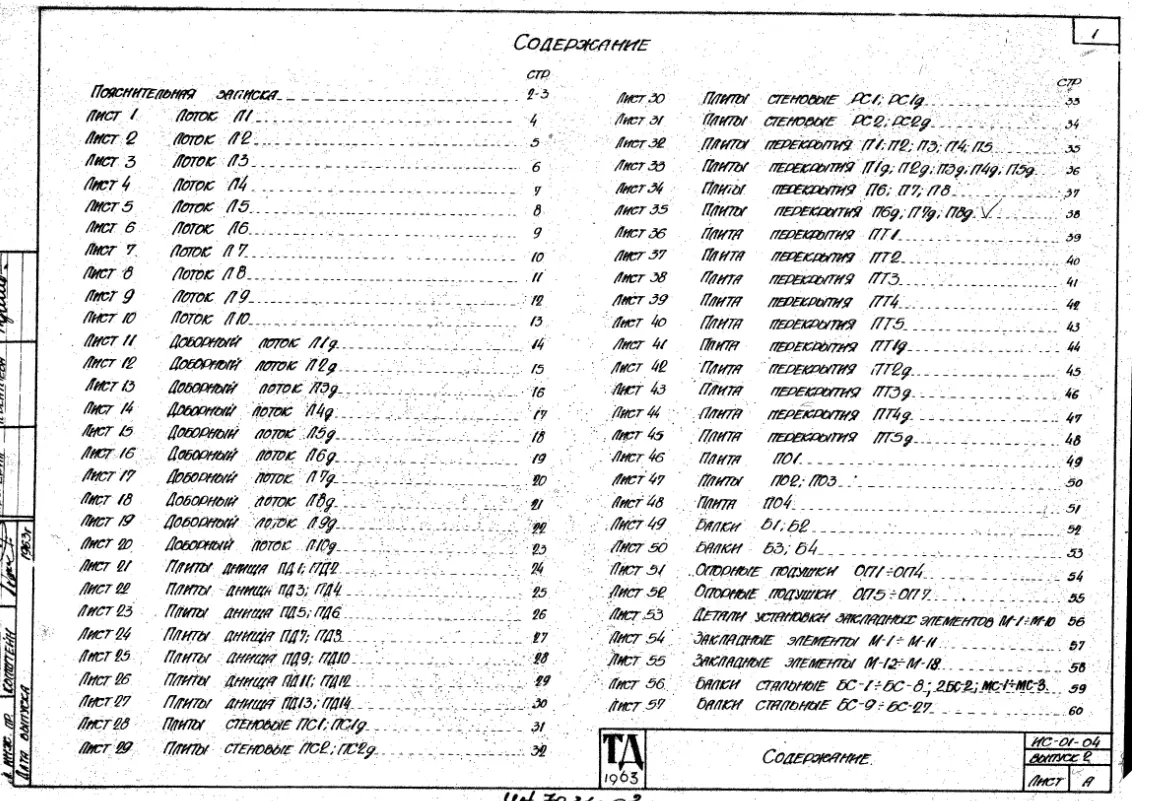 1
Содержание
стр
Пояснительная записка 2-3
Лист 1 Лоток Л1 4
Лист 2 Лоток Л2 5
Лист 3 Лоток Л3 6
Лист 4 Лоток Л4 7
Лист 5 Лоток Л5 8
Лист 6 Лоток Л6 9
Лист 7 Лоток Л7 10
Лист 8 Лоток Л8 11
Лист 9 Лоток Л9 12
Лист 10 Лоток Л10 13
Лист 11 Доборный лоток Л1д 14
Лист 12 Доборный лоток Л2д 15
Лист 13 Доборный лоток Л3д 16
Лист 14 Доборный лоток Л4д 17
Лист 15 Доборный лоток Л5д 18
Лист 16 Доборный лоток Л6д 19
Лист 17 Доборный лоток Л7д 20
Лист 18 Доборный лоток Л8д 21
Лист 19 Доборный лоток Л9д 22
Лист 20 Доборный лоток Л10д 23
Лист 21 Плиты днища ПД1; ПД2 24
Лист 22 Плиты днища ПД3; ПД4 25
Лист 23 Плиты днища ПД5; ПД6 26
Лист 24 Плиты днища ПД7; ПД8 27
Лист 25 Плиты днища ПД9; ПД10 28
Лист 26 Плиты днища ПД11; ПД12 29
Лист 27 Плиты днища ПД13; ПД14 30
Лист 28 Плиты стеновые ПС1; ПС1д 31
Лист 29 Плиты стеновые ПС2; ПС2д 32
стр
Лист 30 Плиты стеновые РС1; РС1д 33
Лист 31 Плиты стеновые РС2; РС2д 34
Лист 32 Плиты перекрытия П1; П2; П3; П4; П5 35
Лист 33 Плиты перекрытия П1д; П2д; П3д; П4д; П5д 36
Лист 34 Плиты перекрытия П6; П7; П8 37
Лист 35 Плиты перекрытия П6д; П7д; П8д 38
Лист 36 Плита перекрытия ПТ1 39
Лист 37 Плита перекрытия ПТ2 40
Лист 38 Плита перекрытия ПТ3 41
Лист 39 Плита перекрытия ПТ4 42
Лист 40 Плита перекрытия ПТ5 43
Лист 41 Плита перекрытия ПТ1д 44
Лист 42 Плита перекрытия ПТ2д 45
Лист 43 Плита перекрытия ПТ3д 46
Лист 44 Плита перекрытия ПТ4д 47
Лист 45 Плита перекрытия ПТ5д 48
Лист 46 Плита ПО1 49
Лист 47 Плиты ПО2; ПО3 50
Лист 48 Плита ПО4 51
Лист 49 Балки Б1; Б2 52
Лист 50 Балки Б3; Б4 53
Лист 51 Опорные подушки ОП1÷ОП4 54
Лист 52 Опорные подушки ОП5÷ОП7 55
Лист 53 Детали установки закладных элементов М-1÷М-10 56
Лист 54 Закладные элементы М-1÷М-11 57
Лист 55 Закладные элементы М-12÷М-18 58
Лист 56 Балки стальные БС-1÷БС-8; 2БС-2; МС-1÷МС-3 59
Лист 57 Балки стальные БС-9÷БС-27 60
ТД
1963
Содержание
ИС-01-04
Выпуск 2
Лист А
Дата выпуска 1963г